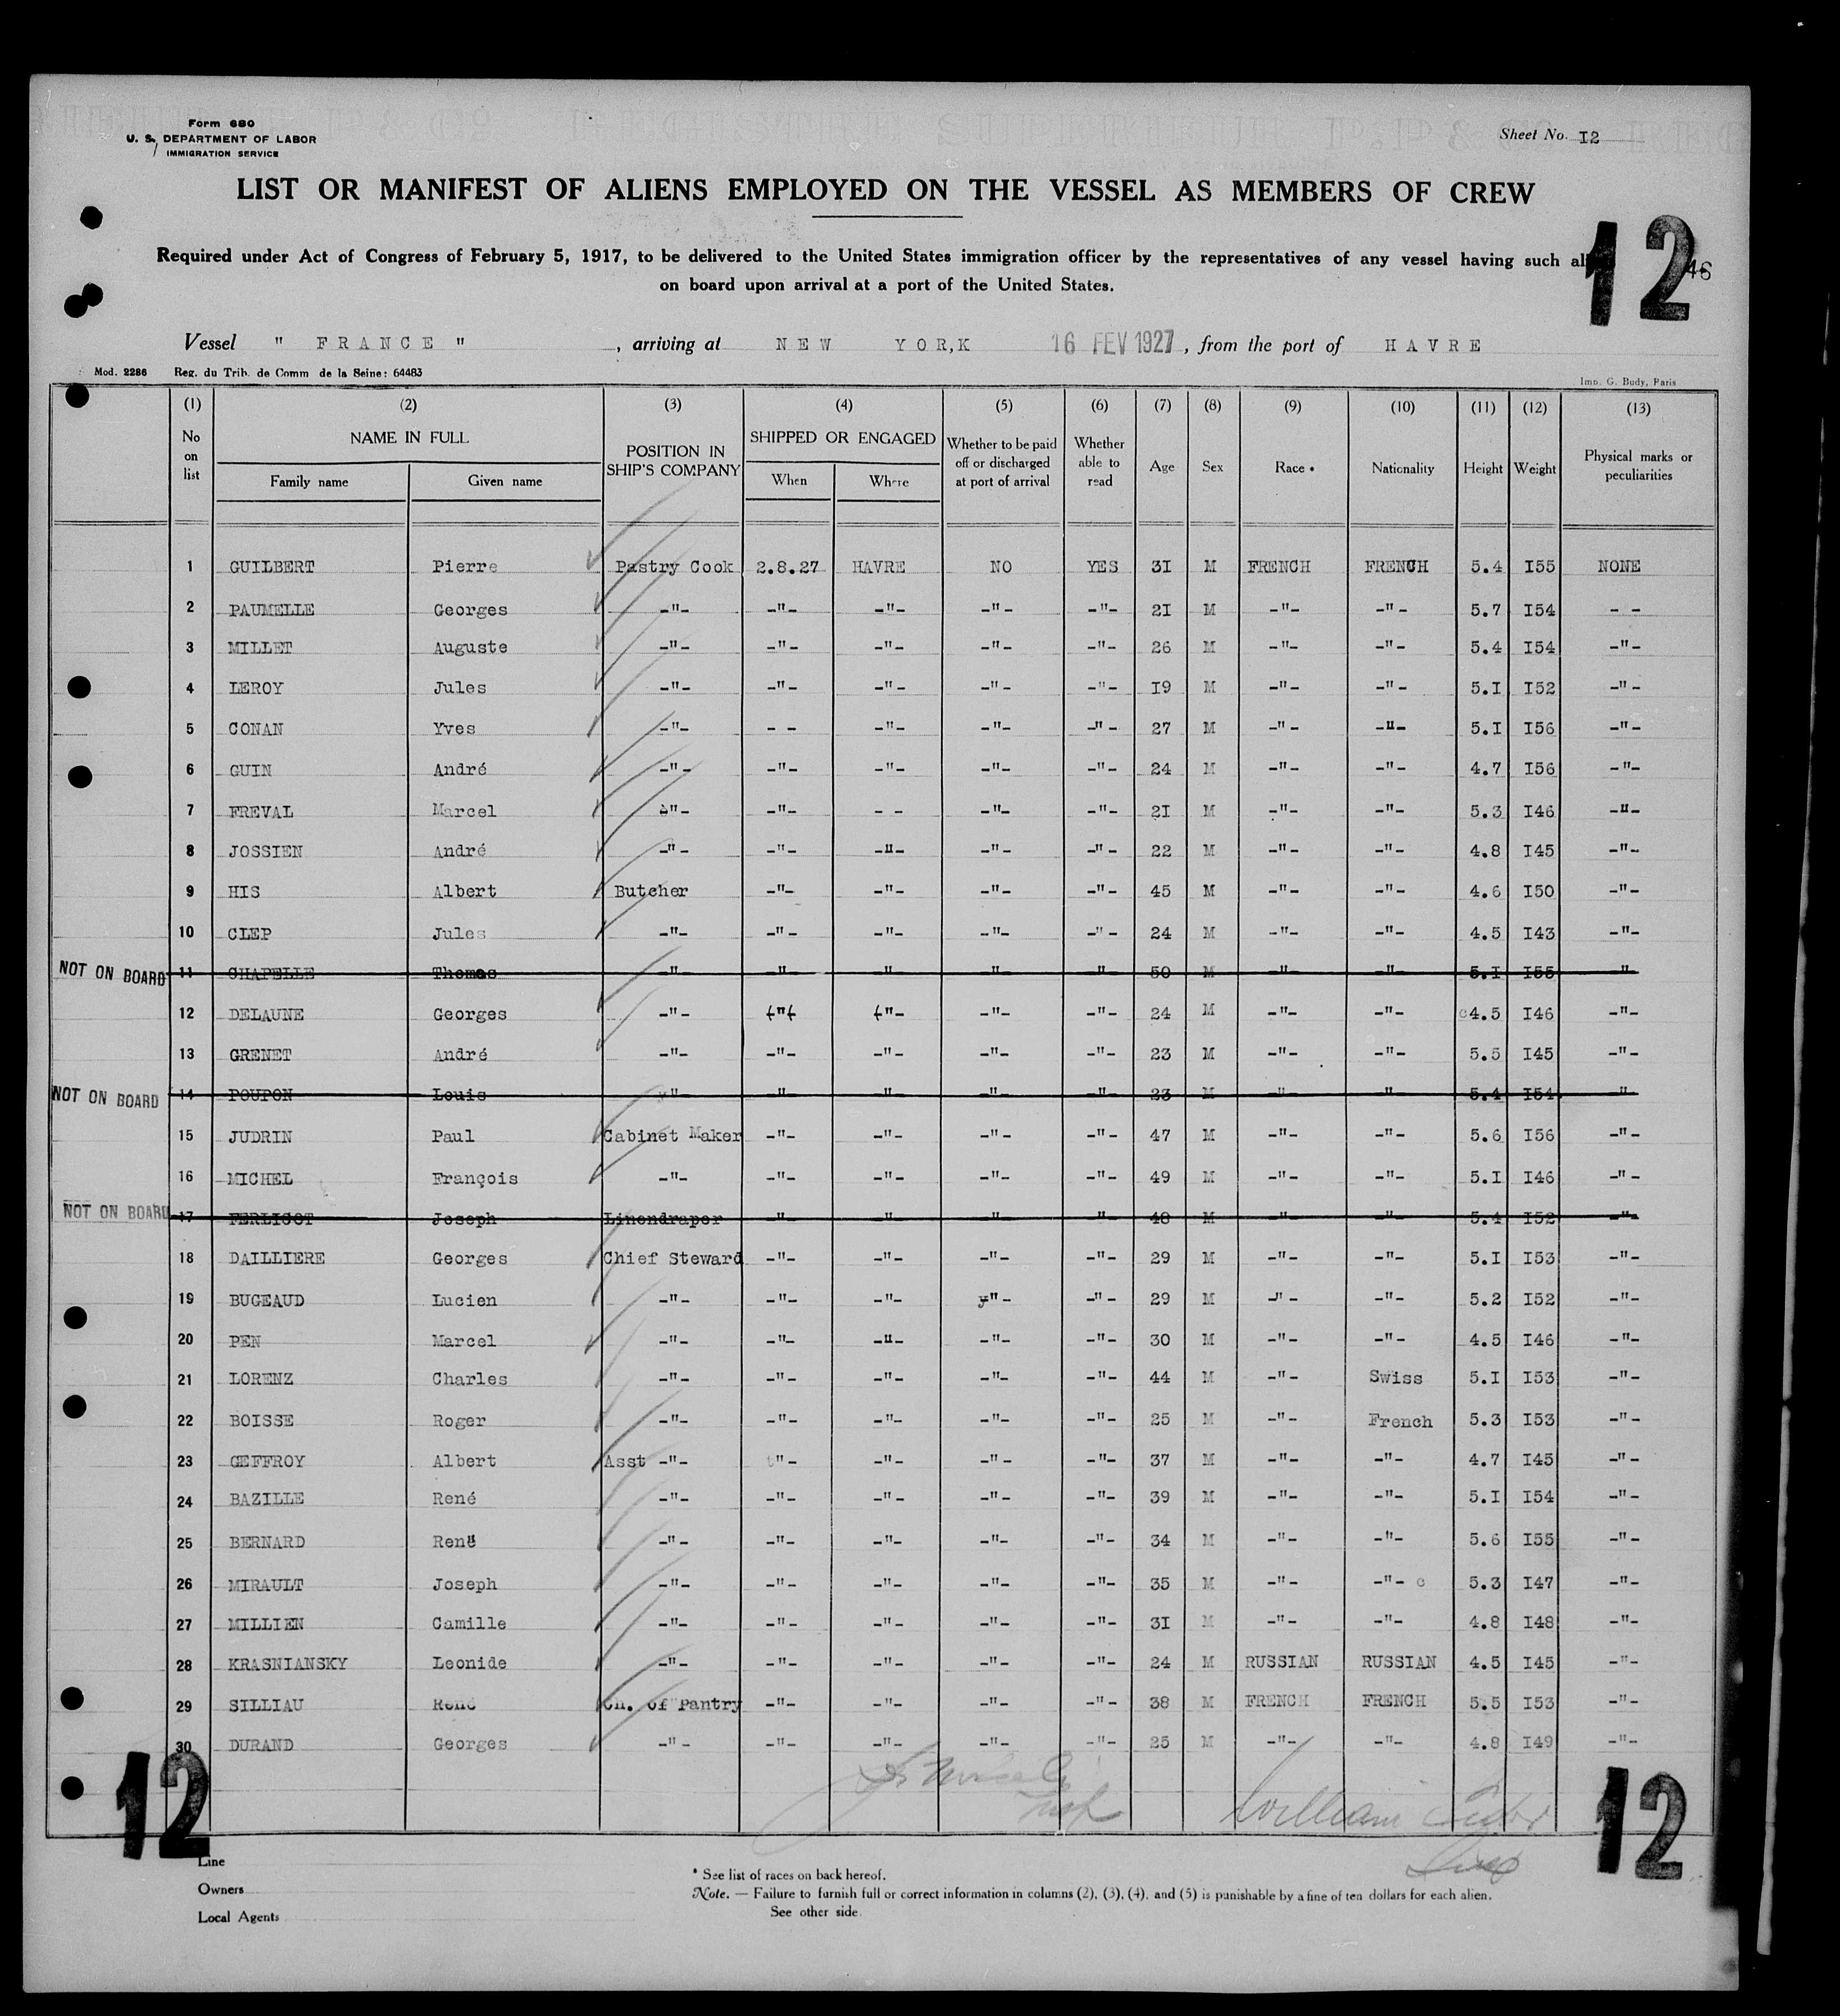 Form 680
U. S. DEPARTMENT OF LABOR
IMMIGRATION SERVICE
Sheet No. I2
LIST OR MANIFEST OF ALIENS EMPLOYED ON THE VESSEL AS MEMBERS OF CREW
12
Required under Act of Congress of February 5, 1917, to be delivered to the United States immigration officer by the representatives of any vessel having such
46
on board upon arrival at a port of the United States.
Vessel " FRANCE " , arriving at NEW YOR,K 16 FEV 1927 , from the port of HAVRE
Mod. 2286 Reg. du Trib. de Comm de la Seine: 64483 Imp. G. Budy, Paris
(1) (2) (3) (4) (5) (6) (7) (8) (9) (10) (11) (12) (13)
No on list NAME IN FULL Family name Given name POSITION IN SHIP'S COMPANY SHIPPED OR ENGAGED When Where Whether to be paid off or discharged at port of arrival Whether able to read Age Sex Race * Nationality Height Weight Physical marks or peculiarities
1 GUILBERT Pierre Pastry Cook 2.8.27 HAVRE NO YES 3I M FRENCH FRENCH 5.4 I55 NONE
2 PAUMELLE Georges -"- -"- -"- -"- -"- 2I M -"- -"- 5.7 I54 - -
3 MILLET Auguste -"- -"- -"- -"- -"- 26 M -"- -"- 5.4 I54 -"-
4 LEROY Jules -"- -"- -"- -"- -"- I9 M -"- -"- 5.I I52 -"-
5 CONAN Yves -"- - - -"- -"- -"- 27 M -"- -"- 5.I I56 -"-
6 GUIN André -"- -"- -"- -"- -"- 24 M -"- -"- 4.7 I56 -"-
7 FREVAL Marcel -"- -"- - - -"- -"- 2I M -"- -"- 5.3 I46 -"-
8 JOSSIEN André -"- -"- -"- -"- -"- 22 M -"- -"- 4.8 I45 -"-
9 HIS Albert Butcher -"- -"- -"- -"- 45 M -"- -"- 4.6 I50 -"-
10 CLEP Jules -"- -"- -"- -"- -"- 24 M -"- -"- 4.5 I43 -"-
NOT ON BOARD 11 CHAPELLE Thomas -"- -"- -"- -"- -"- 50 M -"- -"- 5.I I55 -"-
12 DELAUNE Georges -"- ("( ("- -"- -"- 24 M -"- -"- c4.5 I46 -"-
13 GRENET André -"- -"- -"- -"- -"- 23 M -"- -"- 5.5 I45 -"-
NOT ON BOARD 14 POUPON Louis y"- -"- -"- -"- -"- 23 M -"- -"- 5.4 I54 -"-
15 JUDRIN Paul Cabinet Maker -"- -"- -"- -"- 47 M -"- -"- 5.6 I56 -"-
16 MICHEL François -"- -"- -"- -"- -"- 49 M -"- -"- 5.I I46 -"-
NOT ON BOARD 17 FERLICOT Joseph Linendraper -"- -"- -"- -"- 48 M -"- -"- 5.4 I52 -"-
18 DAILLIERE Georges Chief Steward -"- -"- -"- -"- 29 M -"- -"- 5.I I53 -"-
19 BUGEAUD Lucien -"- -"- -"- y"- -"- 29 M -"- -"- 5.2 I52 -"-
20 PEN Marcel -"- -"- -"- -"- -"- 30 M -"- -"- 4.5 I46 -"-
21 LORENZ Charles -"- -"- -"- -"- -"- 44 M -"- Swiss 5.I I53 -"-
22 BOISSE Roger -"- -"- -"- -"- -"- 25 M -"- French 5.3 I53 -"-
23 GEFFROY Albert Asst -"- -"- -"- -"- -"- 37 M -"- -"- 4.7 I45 -"-
24 BAZILLE René -"- -"- -"- -"- -"- 39 M -"- -"- 5.I I54 -"-
25 BERNARD René -"- -"- -"- -"- -"- 34 M -"- -"- 5.6 I55 -"-
26 MIRAULT Joseph -"- -"- -"- -"- -"- 35 M -"- -"- c 5.3 I47 -"-
27 MILLIEN Camille -"- -"- -"- -"- -"- 3I M -"- -"- 4.8 I48 -"-
28 KRASNIANSKY Leonide -"- -"- -"- -"- -"- 24 M RUSSIAN RUSSIAN 4.5 I45 -"-
29 SILLIAU René Ch. of Pantry -"- -"- -"- -"- 38 M FRENCH FRENCH 5.5 I53 -"-
30 DURAND Georges -"- -"- -"- -"- -"- 25 M -"- -"- 4.8 I49 -"-
William
Insp
12
12
Line
Owners
Local Agents
* See list of races on back hereof.
Note. — Failure to furnish full or correct information in columns (2), (3), (4), and (5) is punishable by a fine of ten dollars for each alien.
See other side.